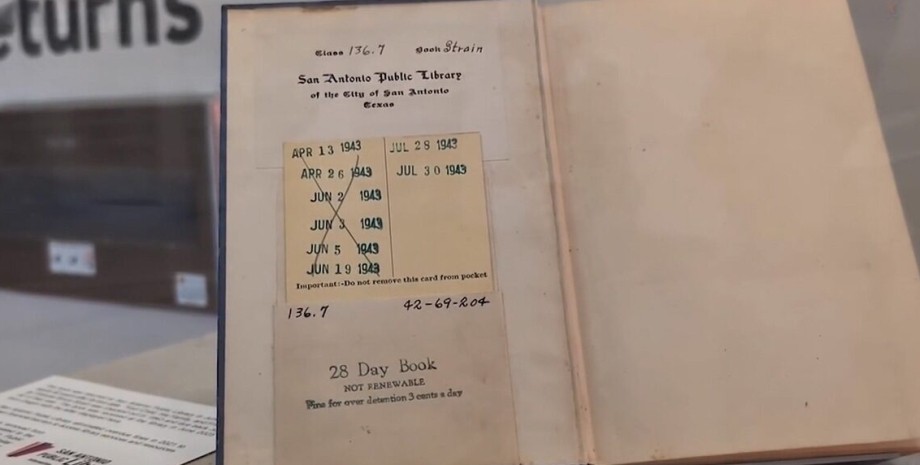 eturns
Class 136.7 Book Strain
San Antonio Public Library
of the City of San Antonio
Texas
APR 13 1943
APR 26 1943
JUN 2 1943
JUN 3 1943
JUN 5 1943
JUN 19 1943
JUL 28 1943
JUL 30 1943
Important:-Do not remove this card from pocket
136.7 42-69-204
28 Day Book
NOT RENEWABLE
Fine for over detention 3 cents a day
SAN ANTONIO